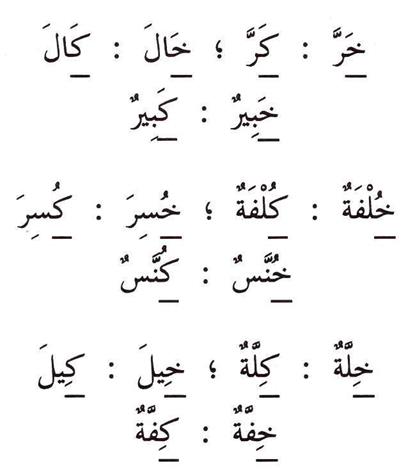 خَرَّ : كَرَّ ؛ خَالَ : كَالَ
خَبِيرٌ : كَبِيرٌ
خُلْفَةٌ : كُلْفَةٌ ؛ خُسِرَ : كُسِرَ
خُنَّسٌ : كُنَّسٌ
خِلَّةٌ : كِلَّةٌ ؛ خِيلَ : كِيلَ
خِفَّةٌ : كِفَّةٌ